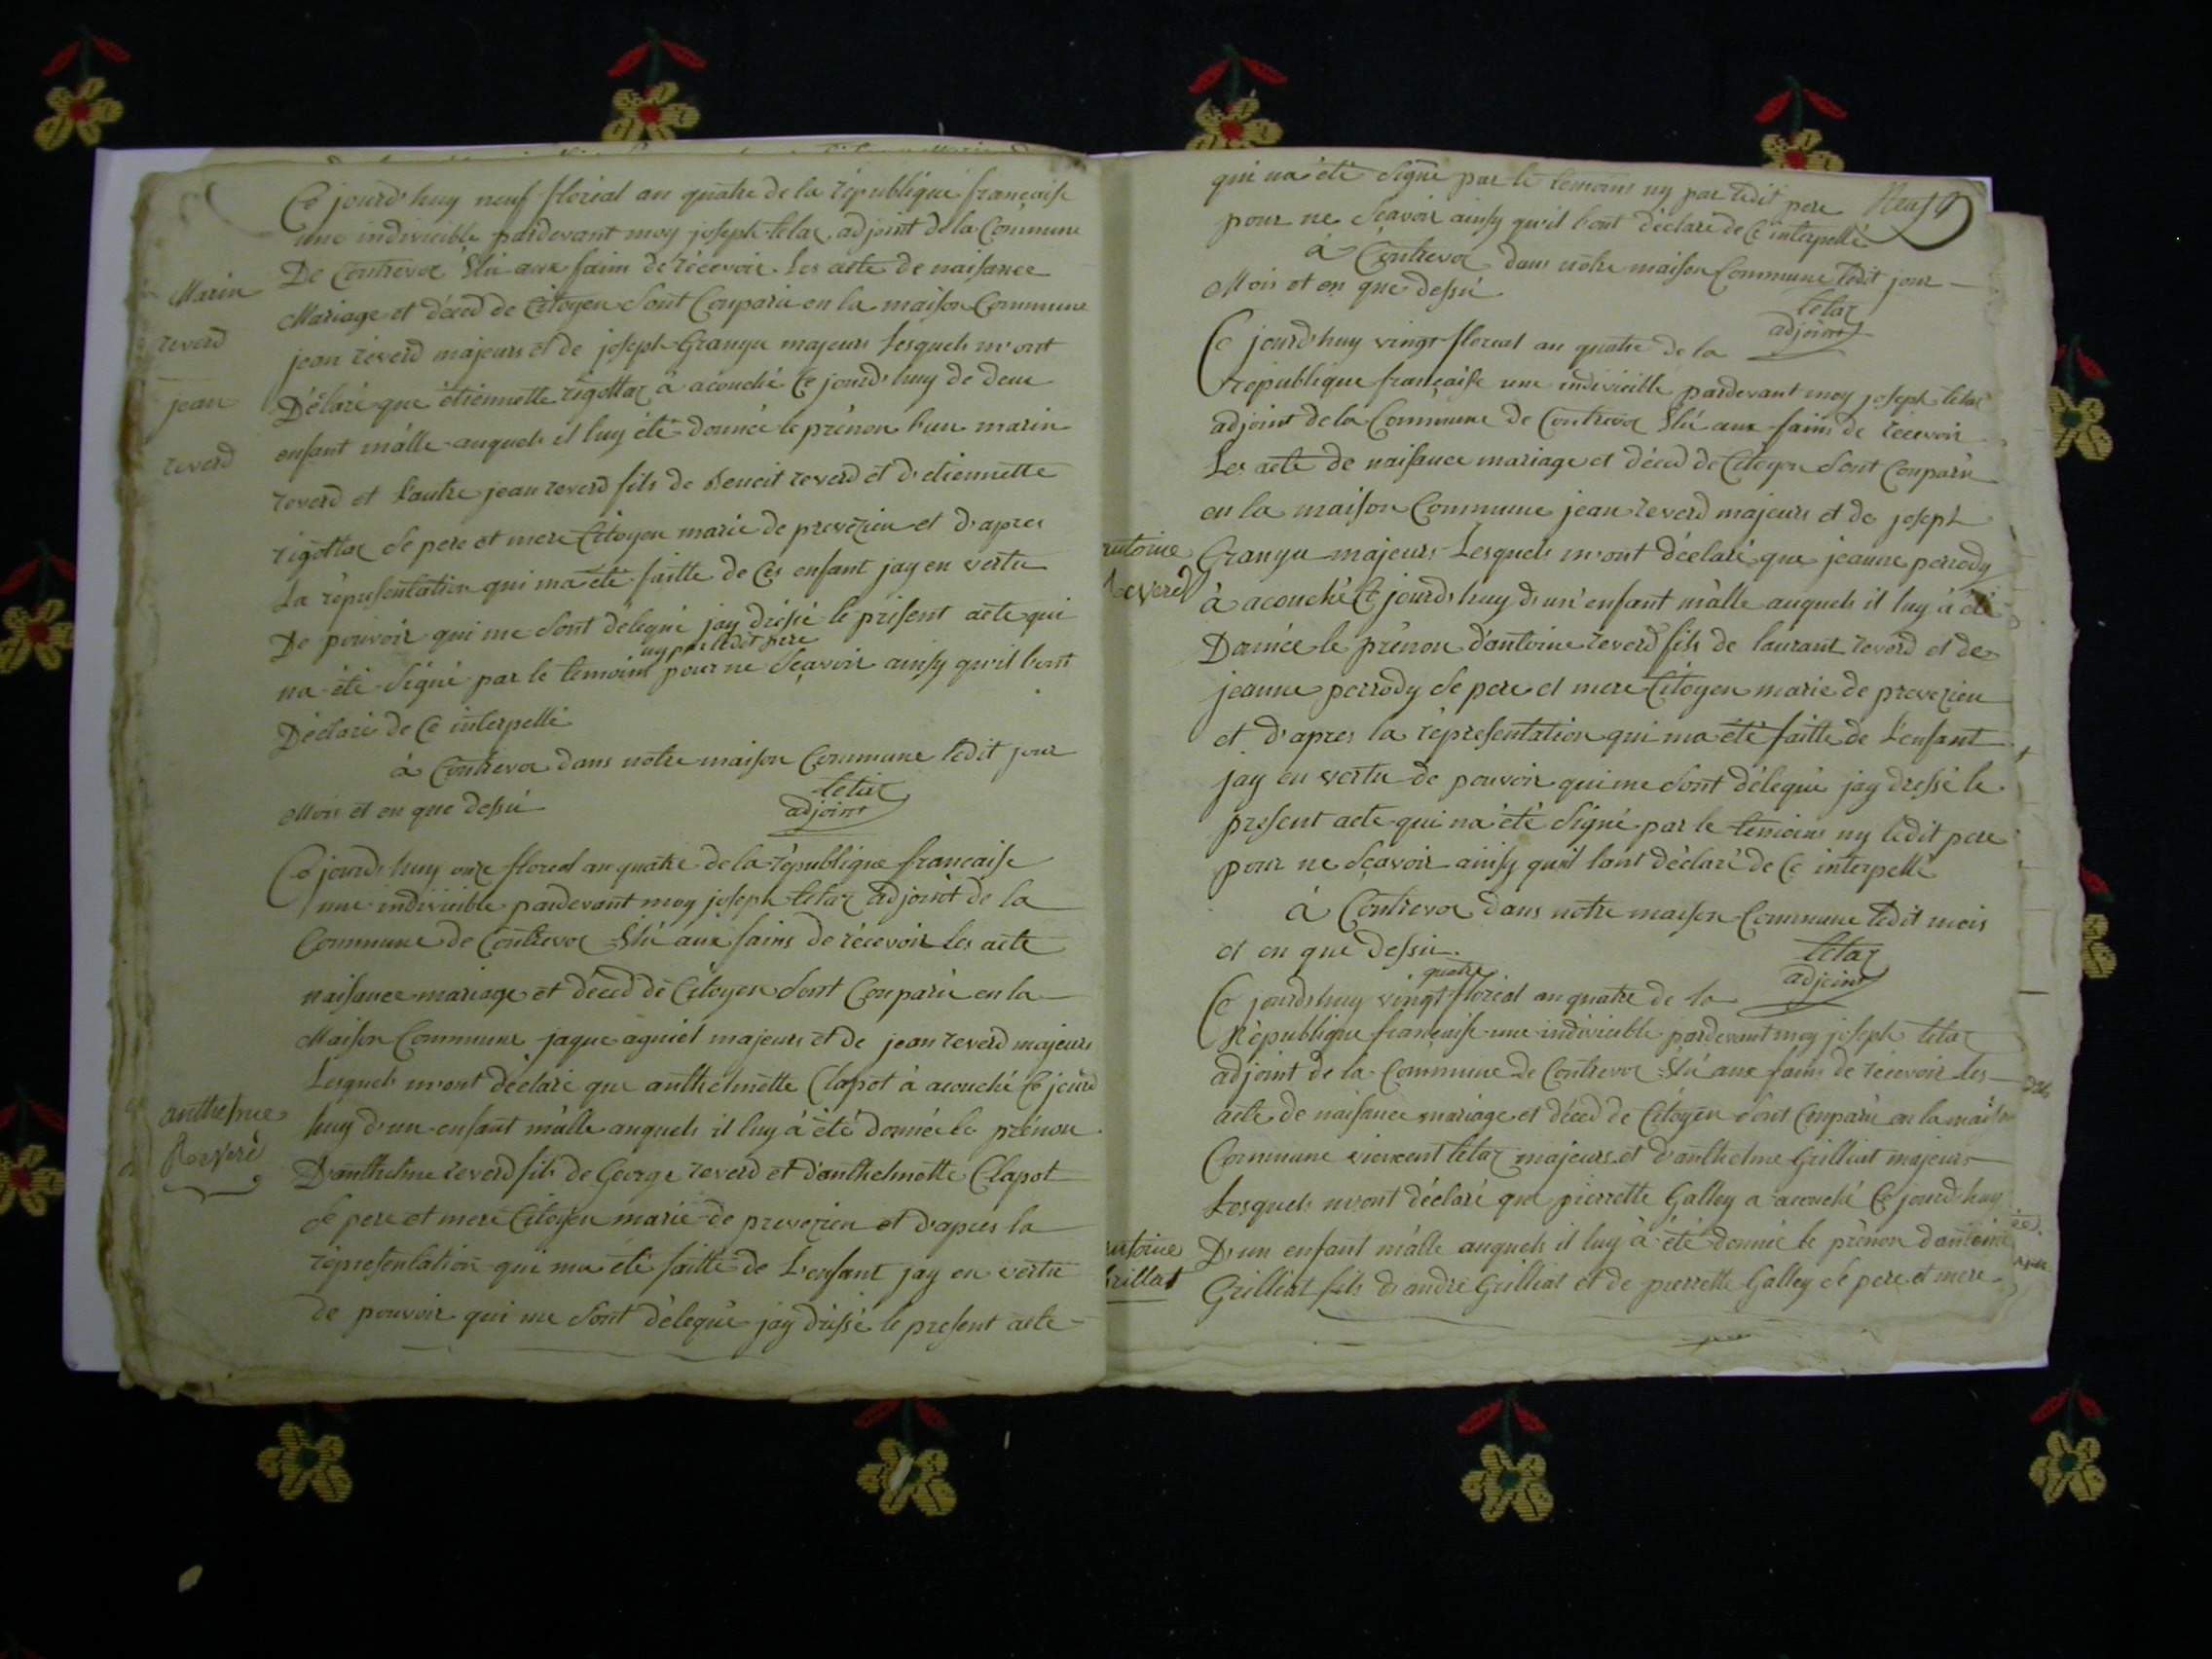 Ce jourd'huy neuf floréal an quatre de la république française
une indivicible pardevant moy joseph tetaz adjoint de la Commune
Marin
De Contrevoz Elû aux fains de récevoir Les acte de naisance
Mariage et déced de Citoyen sont Conparu en la maison Commune
reverd
jean reverd majeurs et de joseph Grangu majeurs Lesquels m'ont
jean
Déclaré que étiennette rigottaz à acouché Ce jourd'huy de deux
reverd
enfant mâlle auquels il luy été donnée le prénon l'un marin
reverd et Lautre jean reverd fils de Benoit reverd et d'etiennette
rigottaz se pere et mere Citoyen marié de prevezieu et d'apres
La répresentation qui ma été faitte de Ces enfant jay en vertu
De pouvoir qui me sont délegué jay dressé le présent acte qui
ny par ledit pere
na été signé par le temoins pour ne sçavoir ainsy qu'il l'ont
Déclaré de Ce interpellé
à Contrevoz dans notre maison Commune ledit jour
Mois et en que dessu
tetaz
adjoint
Ce jourd'huy onze floreal an quatre de la république francaise
une indivicible pardevant moy joseph tetaz adjoint de la
Commune de Contrevoz Elû aux fains de récevoir les acte
naisance mariage et déced de Citoyen sont Conparu en la
Maison Commune jaque agniel majeurs et de jean reverd majeurs
Lesquels m'ont déclaré que anthelmette Clapot à acouché Ce jourd
anthelme
huy d'un enfant mâlle auquels il luy à été donnée le prénon
Reverd
D'anthelme reverd fils de George reverd et d'anthelmette Clapot
se pere et mere Citoyen marié de prevezieu et d'apres la
répresentation qui ma été faitte de L'enfant jay en vertu
de pouvoir qui me sont délegué jay dressé le present acte
qui na été signé par le temoins ny par ledit pere
pour ne sçavoir ainsy qu'il l'ont déclaré de Ce interpellé
à Contrevoz dans nôtre maison Commune ledit jour
Mois et en que dessu
tetaz
adjoint
Ce jourd'huy vingt floreal an quatre de la
république française une indivicible pardevant moy joseph tetaz
adjoint de la Commune de Contrevoz Elû aux fains de récevoir
Les acte de naisance mariage et déced de Citoyen sont Conparu
en la maison Commune jean reverd majeurs et de joseph
antoine
Grangu majeurs Lesquels m'ont déclaré que jeanne perrody
Reverd
à acouché Ce jourd'huy d'un enfant mâlle auquels il luy à été
Donnée le prénon d'antoine reverd fils de laurant reverd et de
jeanne perrody se pere et mere Citoyen marié de prevezieu
et d'apres la répresentation qui ma été faitte de L'enfant
jay en vertu de pouvoir qui me sont délegué jay dressé le
present acte qui na été signé par le temoins ny ledit pere
pour ne sçavoir ainsy qu'il lont déclaré de Ce interpellé
à Contrevoz dans notre maison Commune ledit mois
et en que dessu.
tetaz
adjoint
quatre
Ce jourd'huy vingt floreal an quatre de la
République française une indivicible pardevant moy joseph tetaz
adjoint de la Commune de Contrevoz Elû aux fains de récevoir les
acte de naisance mariage et déced de Citoyen sont Conparu en la maison
Commune viencent tetaz majeurs et d'anthelme Grilliat majeurs
Lesquels m'ont déclaré que pierrette Galley a acouché Ce jourd'huy
antoine
D'un enfant mâlle auquels il luy à été donnée le prénon d'antoine
Grillat
Grilliat fils d'andré Grilliat et de pierrette Galley se pere et mere